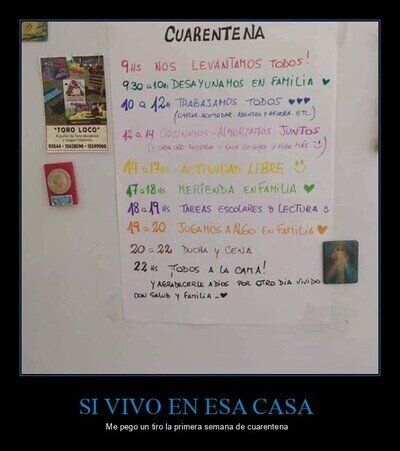 CUARENTENA
9HS NOS LEVANTAMOS TODOS!
9.30 a 10h DESAYUNAMOS EN FAMILIA
10 A 12h TRABAJAMOS TODOS
(LIMPIAR, ACOMODAR, ADENTRO Y AFUERA. ETC.)
12 a 14 COCINAMOS - ALMORZAMOS JUNTOS
(Y CADA UNO RECOGE Y LAVA LO SUYO Y ALGO MÁS)
14 a 17HS ACTIVIDAD LIBRE
17 a 18HS MERIENDA EN FAMILIA
18 a 19HS TAREAS ESCOLARES LECTURA
19 a 20 JUGAMOS A ALGO EN FAMILIA
20 a 22 DUCHA Y CENA
22 HS ¡TODOS A LA CAMA!
Y AGRADECERLE A DIOS POR OTRO DIA VIVIDO
CON SALUD Y FAMILIA -
"TORO LOCO"
Alquiler de Toro Mecánico
y Juegos Inflables
03544 - 15628596 - 15599960
SI VIVO EN ESA CASA
Me pego un tiro la primera semana de cuarentena